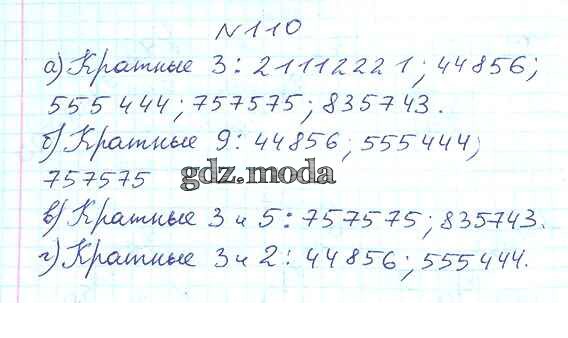 N110
а) Кратные 3: 21112221; 44856;
555 444; 757575; 835743.
б) Кратные 9: 44856; 555444;
757575
gdz.moda
в) Кратные 3 и 5: 757575; 835743.
г) Кратные 3 и 2: 44856; 555444.